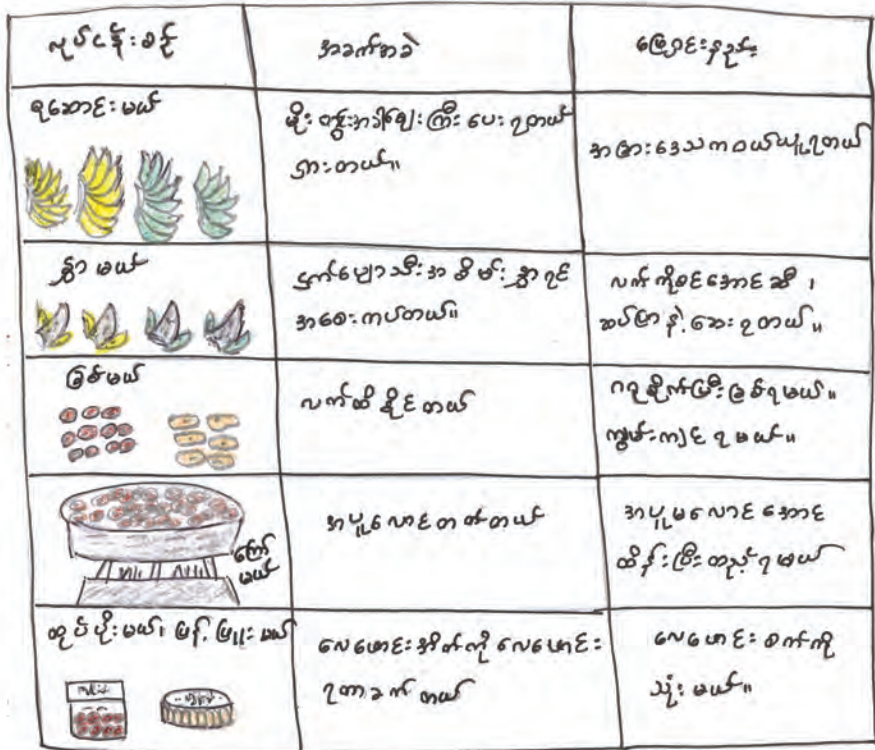 လုပ်ငန်းစဉ်
အခက်အခဲ
ဖြေရှင်းနည်း
ရဆောင်းမယ်
မိုးတွင်းအခါဈေးကြီးပေးရတယ်
ရှားတယ်။
အခြားဒေသကဝယ်ယူရတယ်
နွှာမယ်
ငှက်ပျောသီးအစိမ်းနွှာရင်
အစေးကပ်တယ်။
လက်ကိုစင်အောင်ဆီ၊
ဆပ်ပြာနဲ့ဆေးရတယ်။
ခြစ်မယ်
လက်ထိခိုင်တယ်
ဂရုစိုက်ပြီးခြစ်ရမယ်။
ကျွမ်းကျင်ရမယ်။
ကြော်
မယ်
အပူလောင်တတ်တယ်
အပူမလောင်အောင်
ထိန်းပြီးတည့်ရမယ်
ထုပ်ပိုးမယ်၊ ဖြန့်ဖြူးမယ်
လေဖောင်းအိတ်ကိုလေဖောင်း
ရတာခက်တယ်
လေဖောင်းစက်ကို
သုံးမယ်။